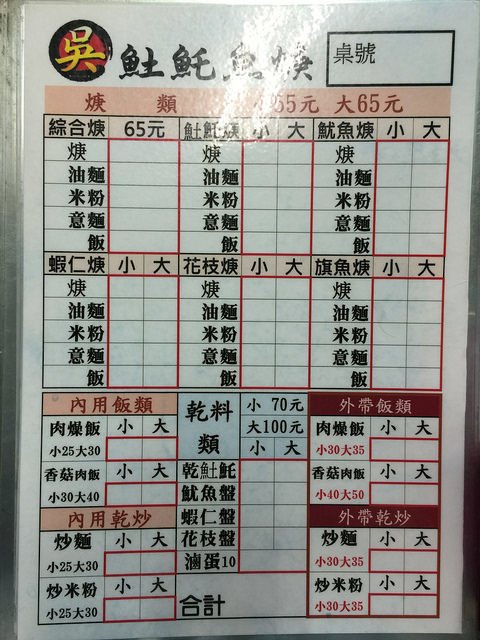 吳 𩵚魠魚焿
桌號
焿 類 小55元 大65元
綜合焿 65元 𩵚魠焿 小 大 魷魚焿 小 大
焿 焿 焿
油麵 油麵 油麵
米粉 米粉 米粉
意麵 意麵 意麵
飯 飯 飯
蝦仁焿 小 大 花枝焿 小 大 旗魚焿 小 大
焿 焿 焿
油麵 油麵 油麵
米粉 米粉 米粉
意麵 意麵 意麵
飯 飯 飯
內用飯類
肉燥飯 小 大
小25大30
香菇肉飯 小 大
小30大40
內用乾炒
炒麵 小 大
小25大30
炒米粉 小 大
小25大30
乾料類
小 70元
大100元
小 大
乾𩵚魠
魷魚盤
蝦仁盤
花枝盤
滷蛋10
合計
外帶飯類
肉燥飯 小 大
小30大35
香菇肉飯 小 大
小40大50
外帶乾炒
炒麵 小 大
小30大35
炒米粉 小 大
小30大35